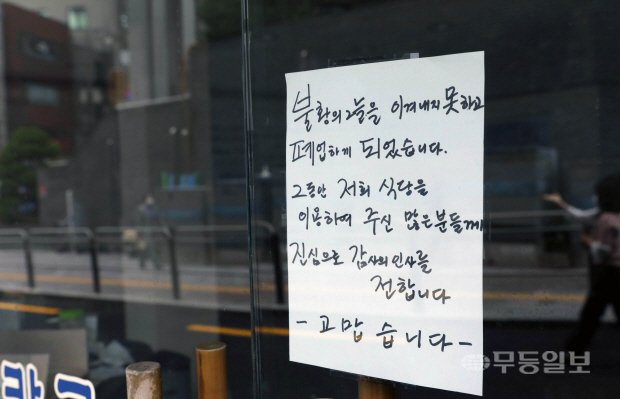 불황의 그늘을 이겨내지 못하고
폐업하게 되었습니다.
그동안 저희 식당을
이용하여 주신 많은분들께
진심으로 감사의 인사를
전합니다
- 고맙습니다 -
무등일보